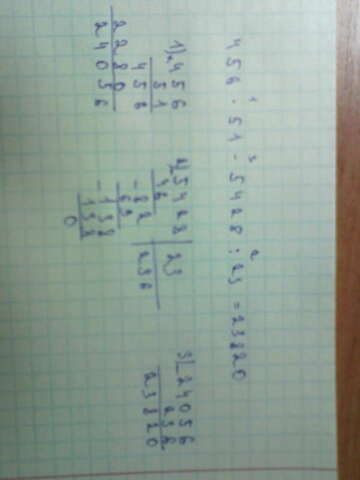 1 3 2
456 · 51 - 5428 : 23 = 23820
1) x 456
51
456
2280
24056
2) - 5428 | 23
46 | 236
- 82
69
- 138
138
0
3) - 24056
236
23820